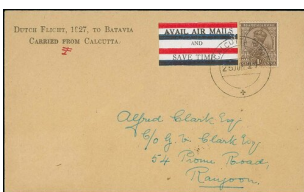 DUTCH FLIGHT, 1927, TO BATAVIA
CARRIED FROM CALCUTTA.
AVAIL AIR MAILS
AND
SAVE TIME
Alfred Clark Esq
C/o G. Clark Esq
54 Prome Road,
Rangoon.